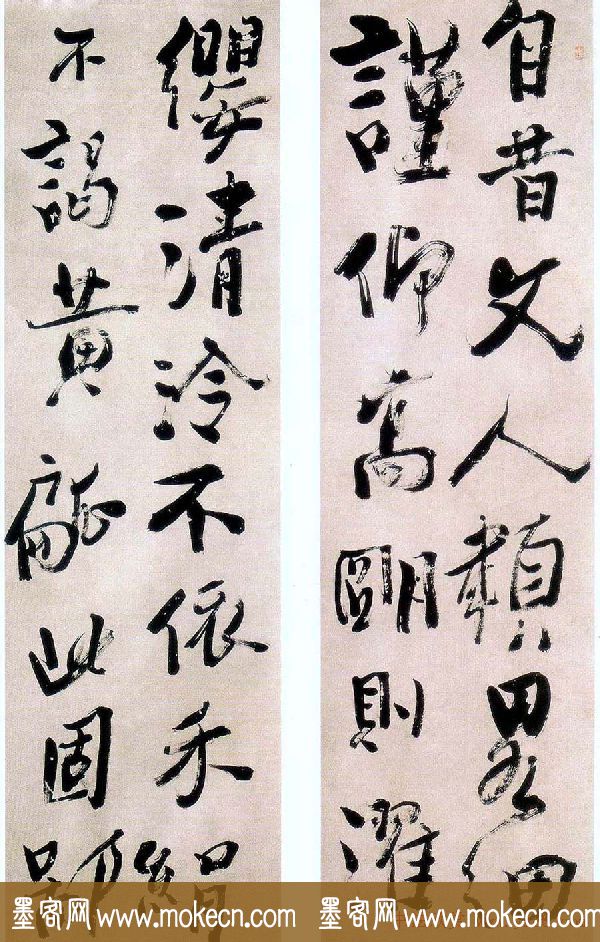 自昔文人類畧細
謹仰高朙則濯
纓清泠不依禾絹
不謁黃此固
墨客网 www.mokecn.com 墨客网 www.mokecn.com